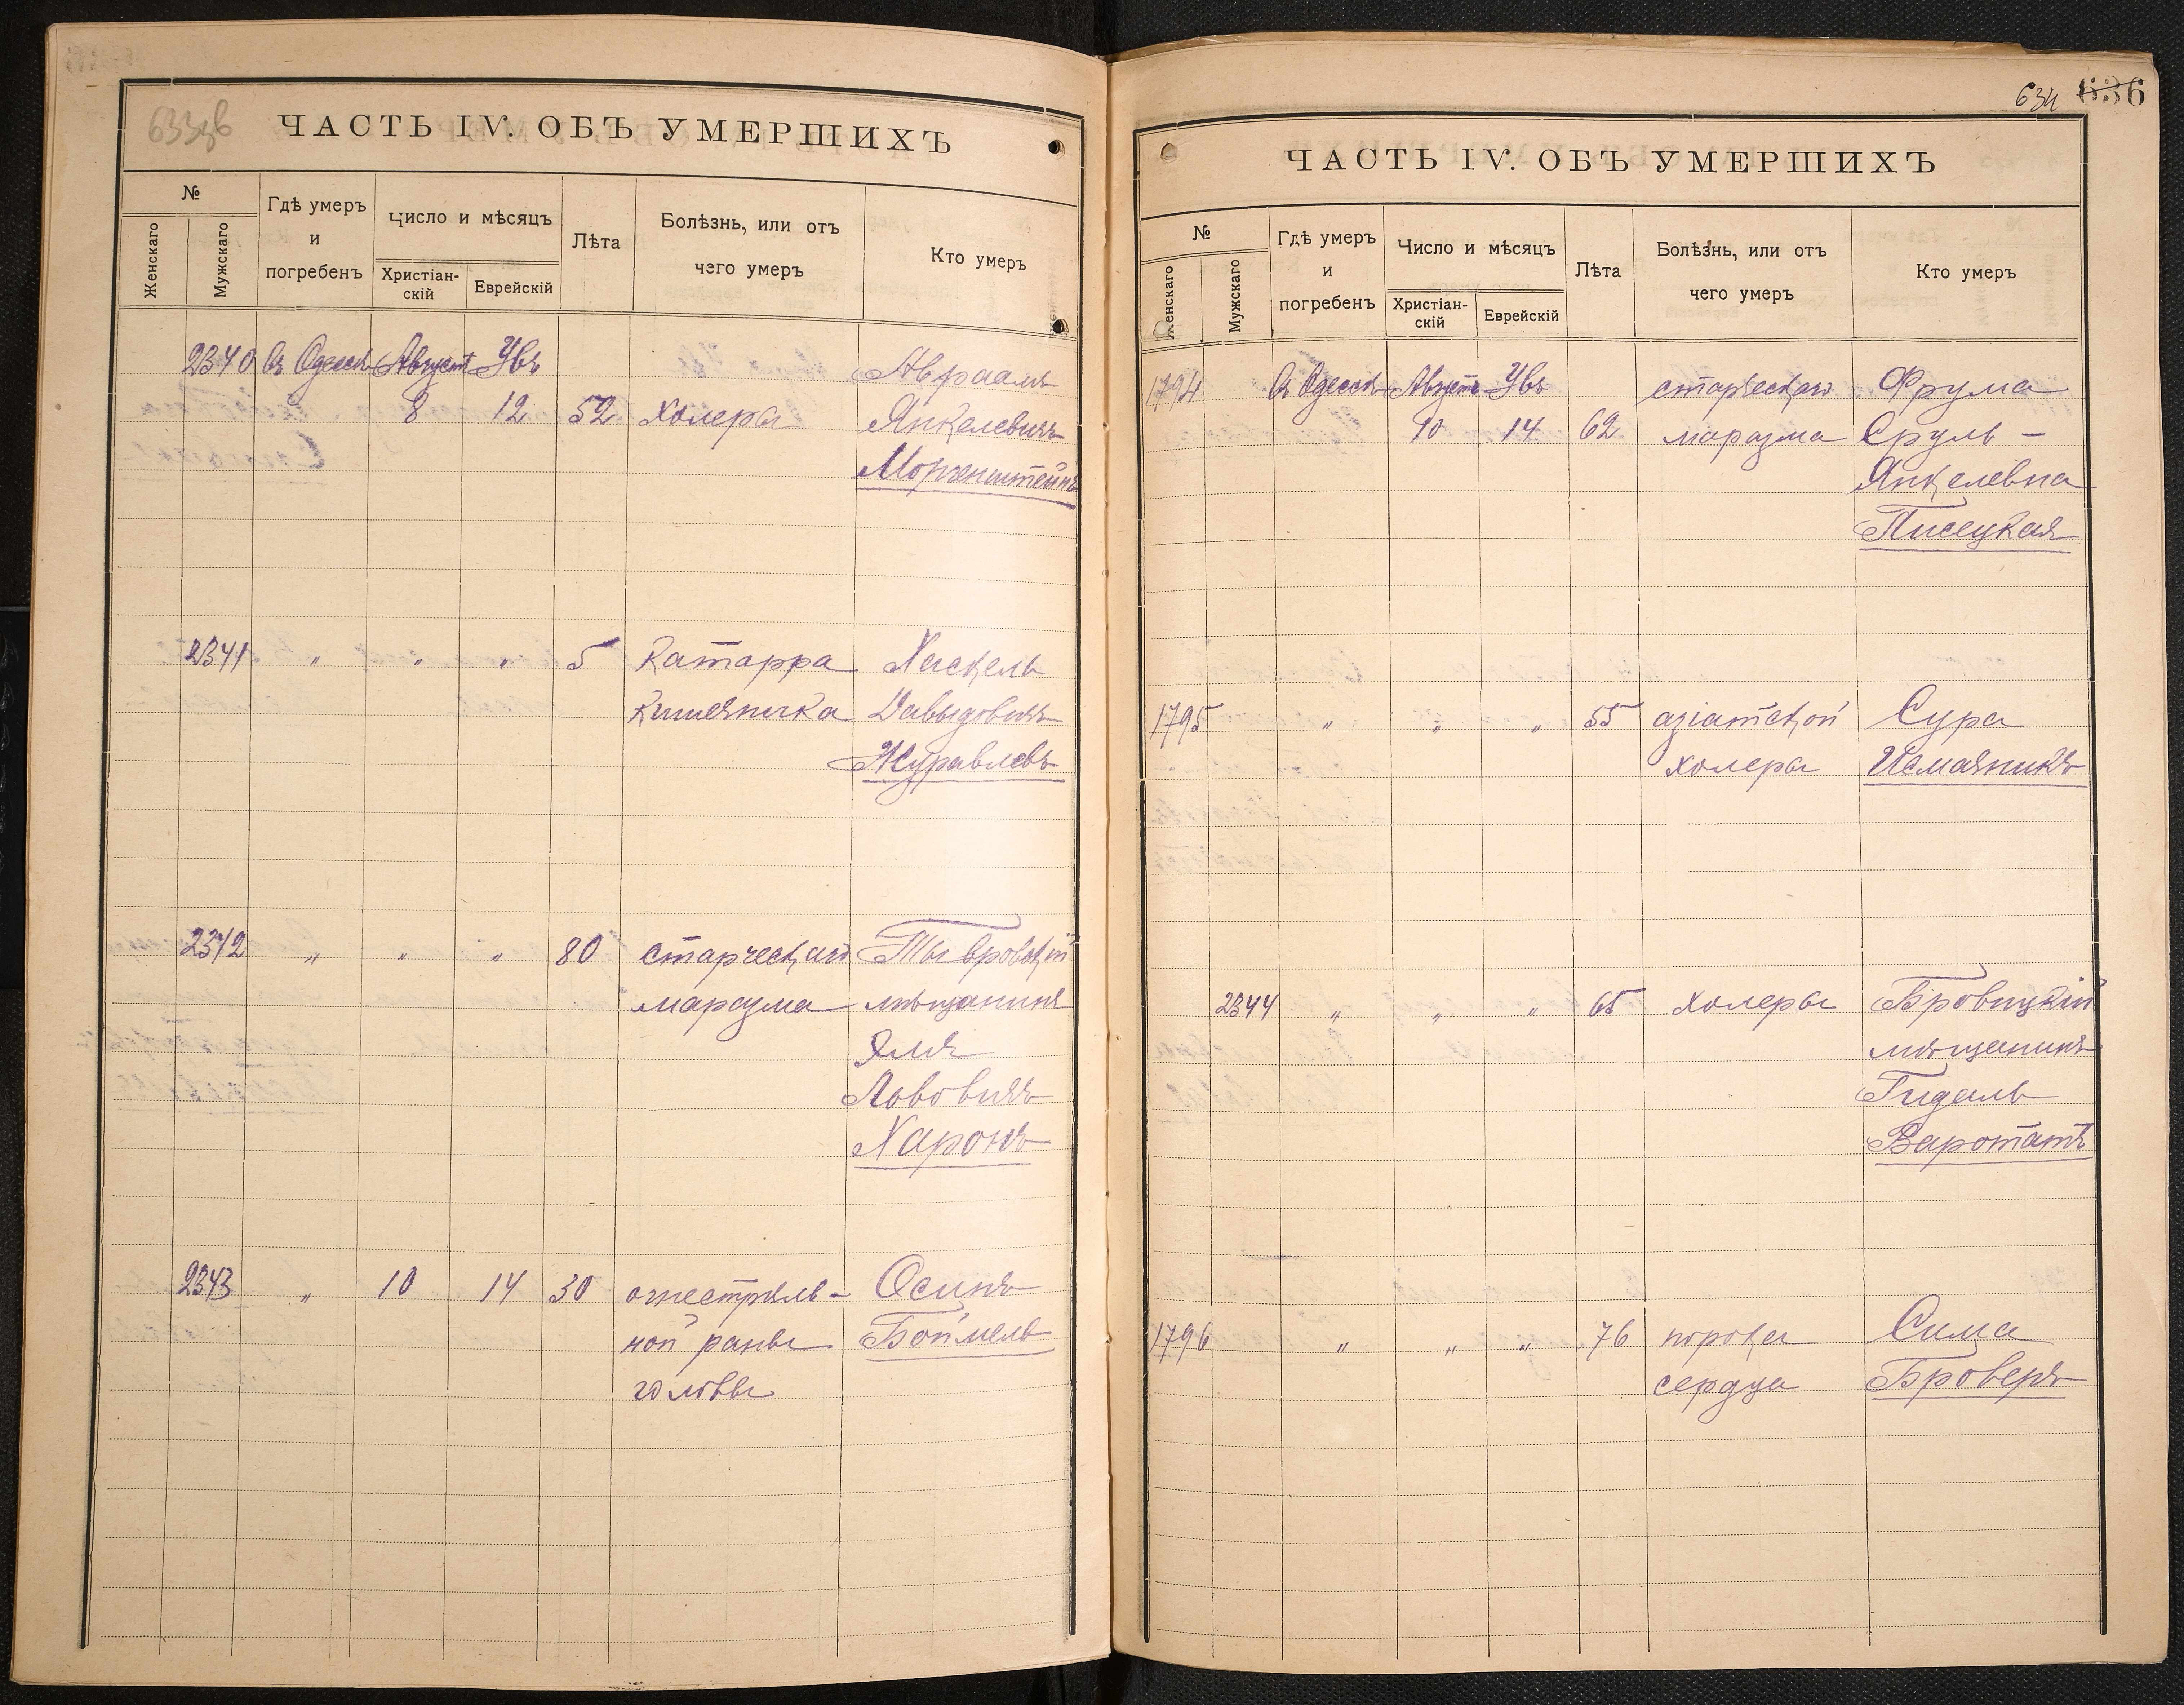 633зв
ЧАСТЬ IV. ОБЪ УМЕРШИХЪ
№
Женскаго
Мужскаго
Гдѣ умеръ
и
погребенъ
Число и мѣсяцъ
Христіан-
скій
Еврейскій
Лѣта
Болѣзнь, или отъ
чего умеръ
Кто умеръ
2340 Въ Одессѣ Августъ Увъ Авраамъ
8 12 52 холера Янкелевичъ
Моргенштейнъ
2341 " " " 5 Катарра Хаскель
Кишечника Давыдовичъ
Журавлевъ
2342 " " " 80 старческаго Тывровскій
маразма мѣщанинъ
Эля
Лововичъ
Харонъ
2343 " 10 14 30 огнестрѣль- Осипъ
ной раны Боймель
головы
634 636
ЧАСТЬ IV. ОБЪ УМЕРШИХЪ
№
Женскаго
Мужскаго
Гдѣ умеръ
и
погребенъ
Число и мѣсяцъ
Христіан-
скій
Еврейскій
Лѣта
Болѣзнь, или отъ
чего умеръ
Кто умеръ
1794 Въ Одессѣ Августъ Увъ старческаго Фрума
10 14 62 маразма Сруль-
Янкелевна
Писецкая
1795 " " " 55 азіатской Сура
холеры
2344 " " " 65 холеры
мѣщанинъ
Гидаль
Варотатъ
1796 " " " 76 порока Сима
сердца Броверъ